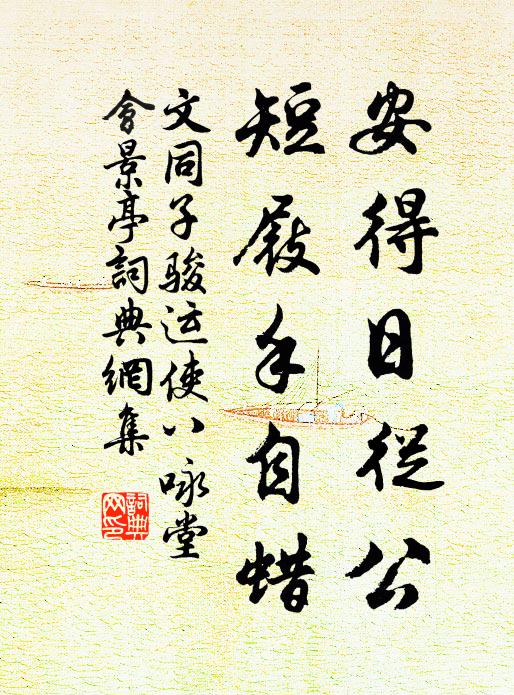 安得日従公
短屐手自蜡
文同子骏运使八咏堂
會景亭詞典網集
詞典网印